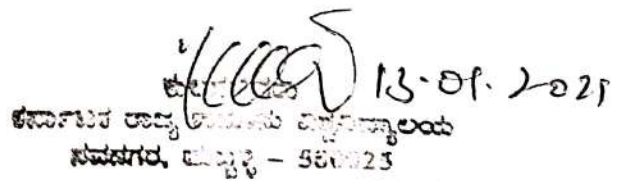 13-01-2021
ಕರ್ನಾಟಕ ರಾಜ್ಯ ಕಾನೂನು ವಿಶ್ವವಿದ್ಯಾಲಯ
ನವನಗರ, ಹುಬ್ಬಳ್ಳಿ – 580025